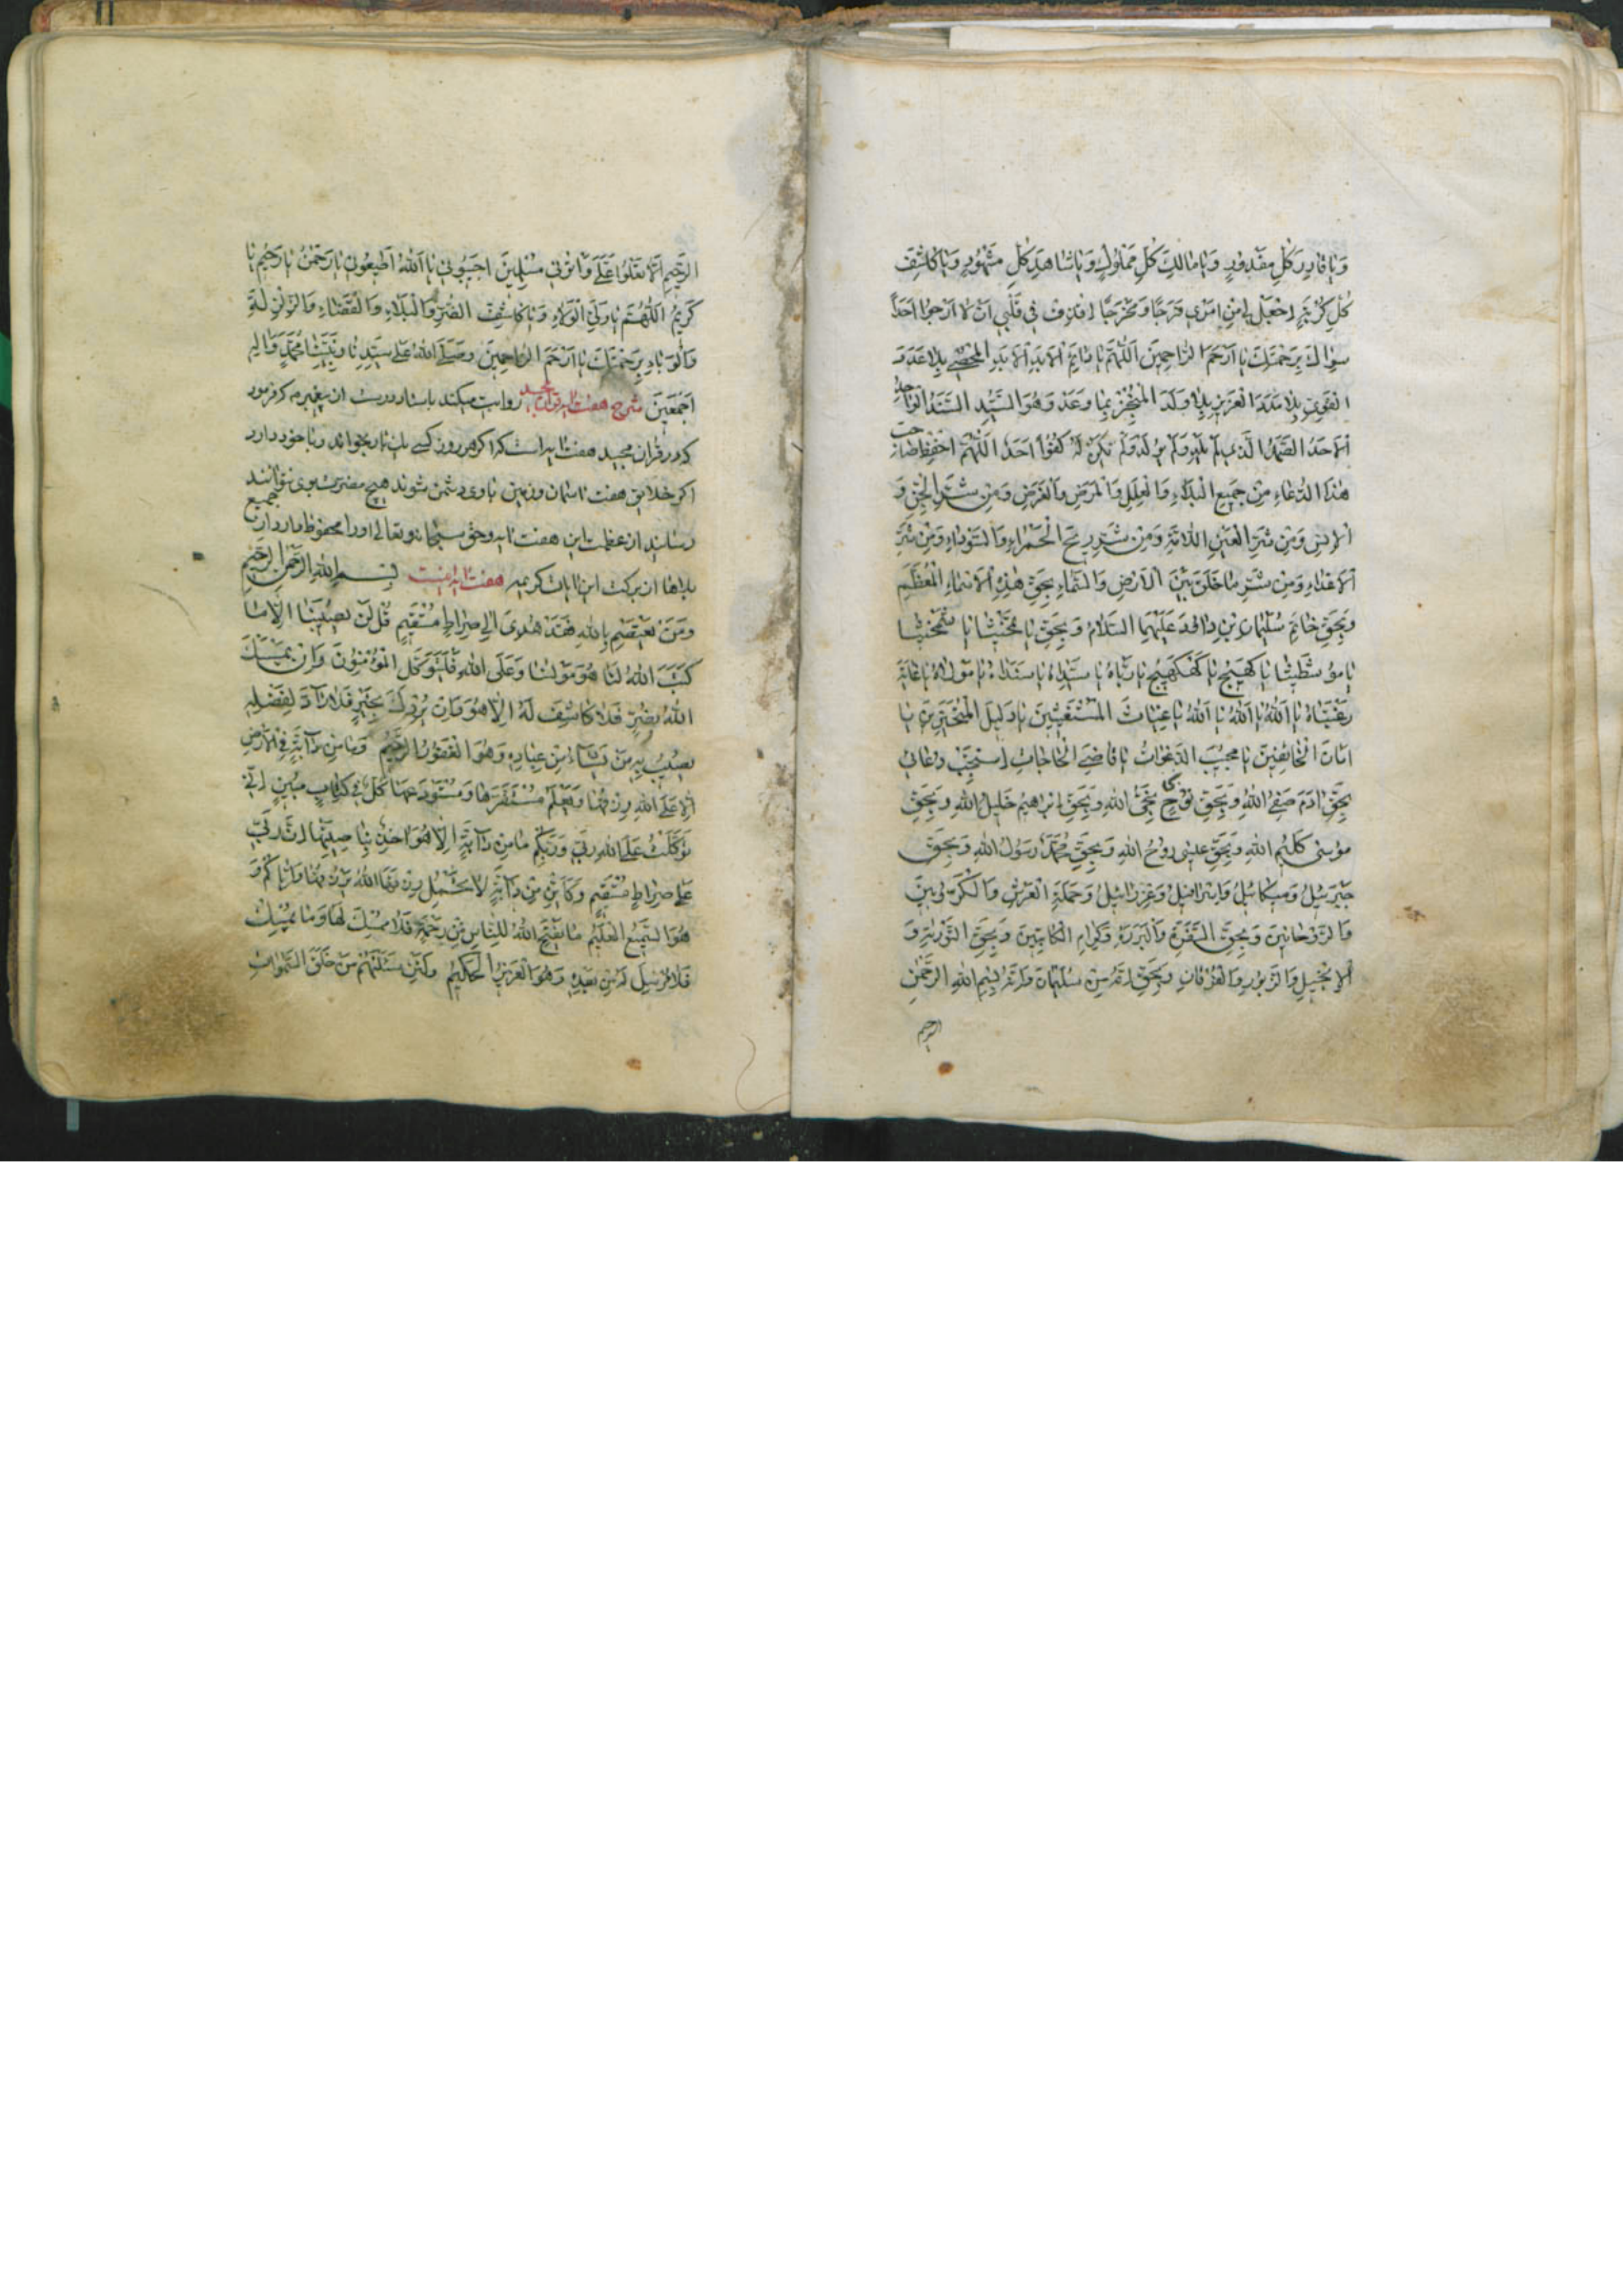 وَيا قادِرَ كُلِّ مَقْدُورٍ وَيا مالِكَ كُلِّ مَمْلُوكٍ وَيا شاهِدَ كُلِّ مَشْهُودٍ وَيا كاشِفَ
كُلِّ كُرْبَةٍ اجْعَلْ لِي مِنْ اَمْرِي فَرَجًا وَمَخْرَجًا اقذف فى قَلْبِى اَنْ لا اَرْجُوا اَحَدًا
سِواكَ بِرَحْمَتِكَ يا اَرْحَمَ الرّاحِمِينَ اَللّهُمَّ يا اَلاَبَدِ بِلا عَدَدَ
القَوِيّ بِلا مَدَدَ العَزِيزِ بِلا وَلَدَ المُنْجِز بِما وَعَدَ وَهُوَ السَّيِّد السَّنَدُ الواحِدُ
اَلاَحَدُ الصَّمَدُ الَّذِى لَمْ يَلِدْ وَلَمْ يُولَدْ وَلَمْ يَكُنْ لَهُ كُفُوًا اَحَدٌ اَللّهُمَّ احْفِظْ صاحِبَ
هٰذَا الدُّعاءِ مِنْ جَمِيعِ البَلاءِ وَالعِلَلِ وَالمَرَضِ وَالغَرَضِ وَمِنْ شَرِّ الجِنِّ وَ
الاِنْسِ وَمِنْ شَرِّ العَيْنِ اللّامَّةِ وَمِنْ شَرِّ رِيحِ الحَمْراءِ وَالسَّوْداءِ وَمِنْ شَرِّ
اَلاَعْداءِ وَمِنْ شَرِّ ما خَلَقَ بَيْنَ الاَرْضِ وَالسَّماءِ بِحَقِّ هٰذِهِ الاَسْماءِ المُعَظَّمِ
وَبِحَقِّ خاتَمِ سُلَيْمان بْنِ داوُدَ عَلَيْهِمَا السَّلامُ وَبِحَقِّ يا
يا رَبّاهُ يا سَيِّداهُ يا سَنَداهُ يا مَوْلاهُ يا غايَةَ
رَغْبَتاهُ يا اَللّهُ يا اَللّهُ يا اَللّهُ يا غِياثَ المُسْتَغِيثِينَ يا دَلِيلَ المُتَحَيِّرِينَ يا
اَمانَ الخائِفِينَ يا مُجِيبَ الدَّعَواتُ يا قاضِىَ الحاجاتِ اِسْتَجِبْ دُعائى
بِحَقِّ ادَمَ صَفِىُّ اللهِ وَبِحَقِّ نُوحٍ نَجِىُّ اللهِ وَبِحَقِّ اِبْراهِيمُ خَلِيلُ اللهِ وَبِحَقِّ
مُوسٰى كَلِيمُ اللهِ وَبِحَقِّ عيسٰى رُوحُ اللهِ وَبِحَقِّ مُحَمَّدُ رَسُولُ اللهِ وَبِحَقِّ
جَبْرَئِيلُ وَمِيكائِيلُ وَاِسْرافِيلُ وَعِزْرائِيلُ وَحَمَلَةِ العَرْشِ وَالكَرُّوبِيّينَ
وَالرَّوْحانِيينَ وَبِحَقِّ السَّفَرَةِ وَالبَرَرَةِ وَكِرامِ الكاتِبِينَ وَبِحَقِّ التَّوْريٰةِ وَ
الاِنْجِيلِ وَالزَّبُورِ وَالفُرْقانِ وَبِحَقِّ اِنَّهُ مِنْ سُلَيْمانَ وَاِنَّهُ بِسْمِ اللهِ الرَّحْمٰنِ
الرحيم
الرَّحِيمِ اَلاّ تَعْلُوا عَلَىَّ وَأْتُونِى مُسْلِمِينَ اَجِيبُونِى يا اَللهُ اَطِيعُونِى يا رَحْمٰنُ يا رَحِيمُ يا
كَرِيمُ اَللّهُمَّ يا وَلِىَّ الوَلاءِ وَيا كاشِفَ الضُّرِّ وَالبَلاءِ وَالقَضاءِ وَالزَّلْزَلَةِ
وَالوَباءِ بِرَحْمَتِكَ يا اَرْحَمَ الرّاحِمِينَ وَصَلَّى اللهُ عَلى سَيِّدِنا وَنَبِيِّنا مُحَمَّدٍ وَآلِهِ
اَجْمَعِينَ شرح هفت ايه قرآن مجيد روايت ميكند باسناد درست از پيغمبر كه فرمود
كه در قران مجيد هفت ايه است كه اگر هر روز كسى يك بار بخواند ويا خود دارد
اكر خلايق هفت اسمان وزمين با وى دشمن شوند هيچ مضرت بوى نتوانند
رسانيد از عظمت اين هفت ايه وحق سبحانه وتعالى اورا محفوظ ما دارد از جميع
بلاها از بركت اين ايات كريمه هفت ايه اينست بِسْمِ اللهِ الرَّحْمٰنِ الرَّحِيمِ
وَمَنْ يَعْتَصِمْ بِاللهِ فَقَدْ هُدِىَ اِلى صِراطٍ مُسْتَقِيمٍ قُلْ لَنْ يُصِيبَنا اِلاّ ما
كَتَبَ اللهُ لَنا هُوَ مَوْلٰنا وَعَلَى اللهِ فَلْيَتَوَكَّلِ المُؤْمِنُونَ وَاِنْ يَمْسَسْكَ
اللهُ بِضُرٍّ فَلا كاشِفَ لَهُ اِلاّ هُوَ وَاِنْ يُرِدْكَ بِخَيْرٍ فَلا رَآدَّ لِفَضْلِهِ
يُصِيبُ بِهِ مَنْ يَشاءُ مِنْ عِبادِهِ وَهُوَ الغَفُورُ الرَّحِيمُ وَما مِنْ دآبَّةٍ فِى الاَرْضِ
اِلاّ عَلَى اللهِ رِزْقُها وَيَعْلَمُ مُسْتَقَرَّها وَمُسْتَوْدَعَها كُلٌّ فى كِتابٍ مُبِينٍ اِنّى
تَوَكَّلْتُ عَلَى اللهِ رَبّى وَرَبِّكُمْ ما مِنْ دآبَّةٍ اِلاّ هُوَ آخِذٌ بِناصِيَتِها اِنَّ رَبّى
عَلى صِراطٍ مُسْتَقِيمٍ وَكَاَيِّنْ مِنْ دآبَّةٍ لا تَحْمِلُ رِزْقَهَا اللهُ يَرْزُقُها وَاِيّاكُمْ وَ
هُوَ السَّمِيعُ العَلِيمُ ما يَفْتَحِ اللهُ لِلنّاسِ مِنْ رَحْمَةٍ فَلا مُمْسِكَ لَها وَما يُمْسِكْ
فَلا مُرْسِلَ لَهُ مِنْ بَعْدِهِ وَهُوَ العَزِيزُ الحَكِيمُ وَلَئِنْ سَئَلْتَهُمْ مَنْ خَلَقَ السَّمٰواتِ